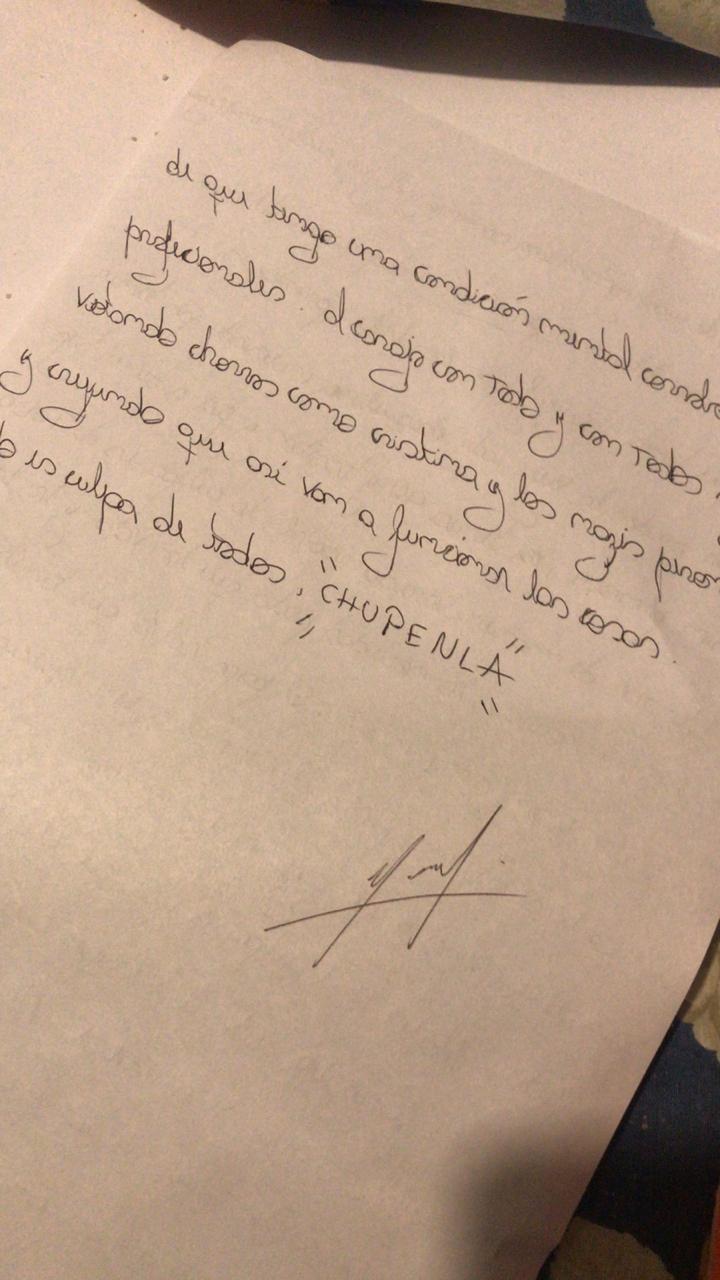 de que tengo una condición mental
profecionales. al carajo con todo y con todos
votando chorros como cristina y los
y creyendo que así van a funcionar las cosas.
es culpa de todos, "CHUPENLA"